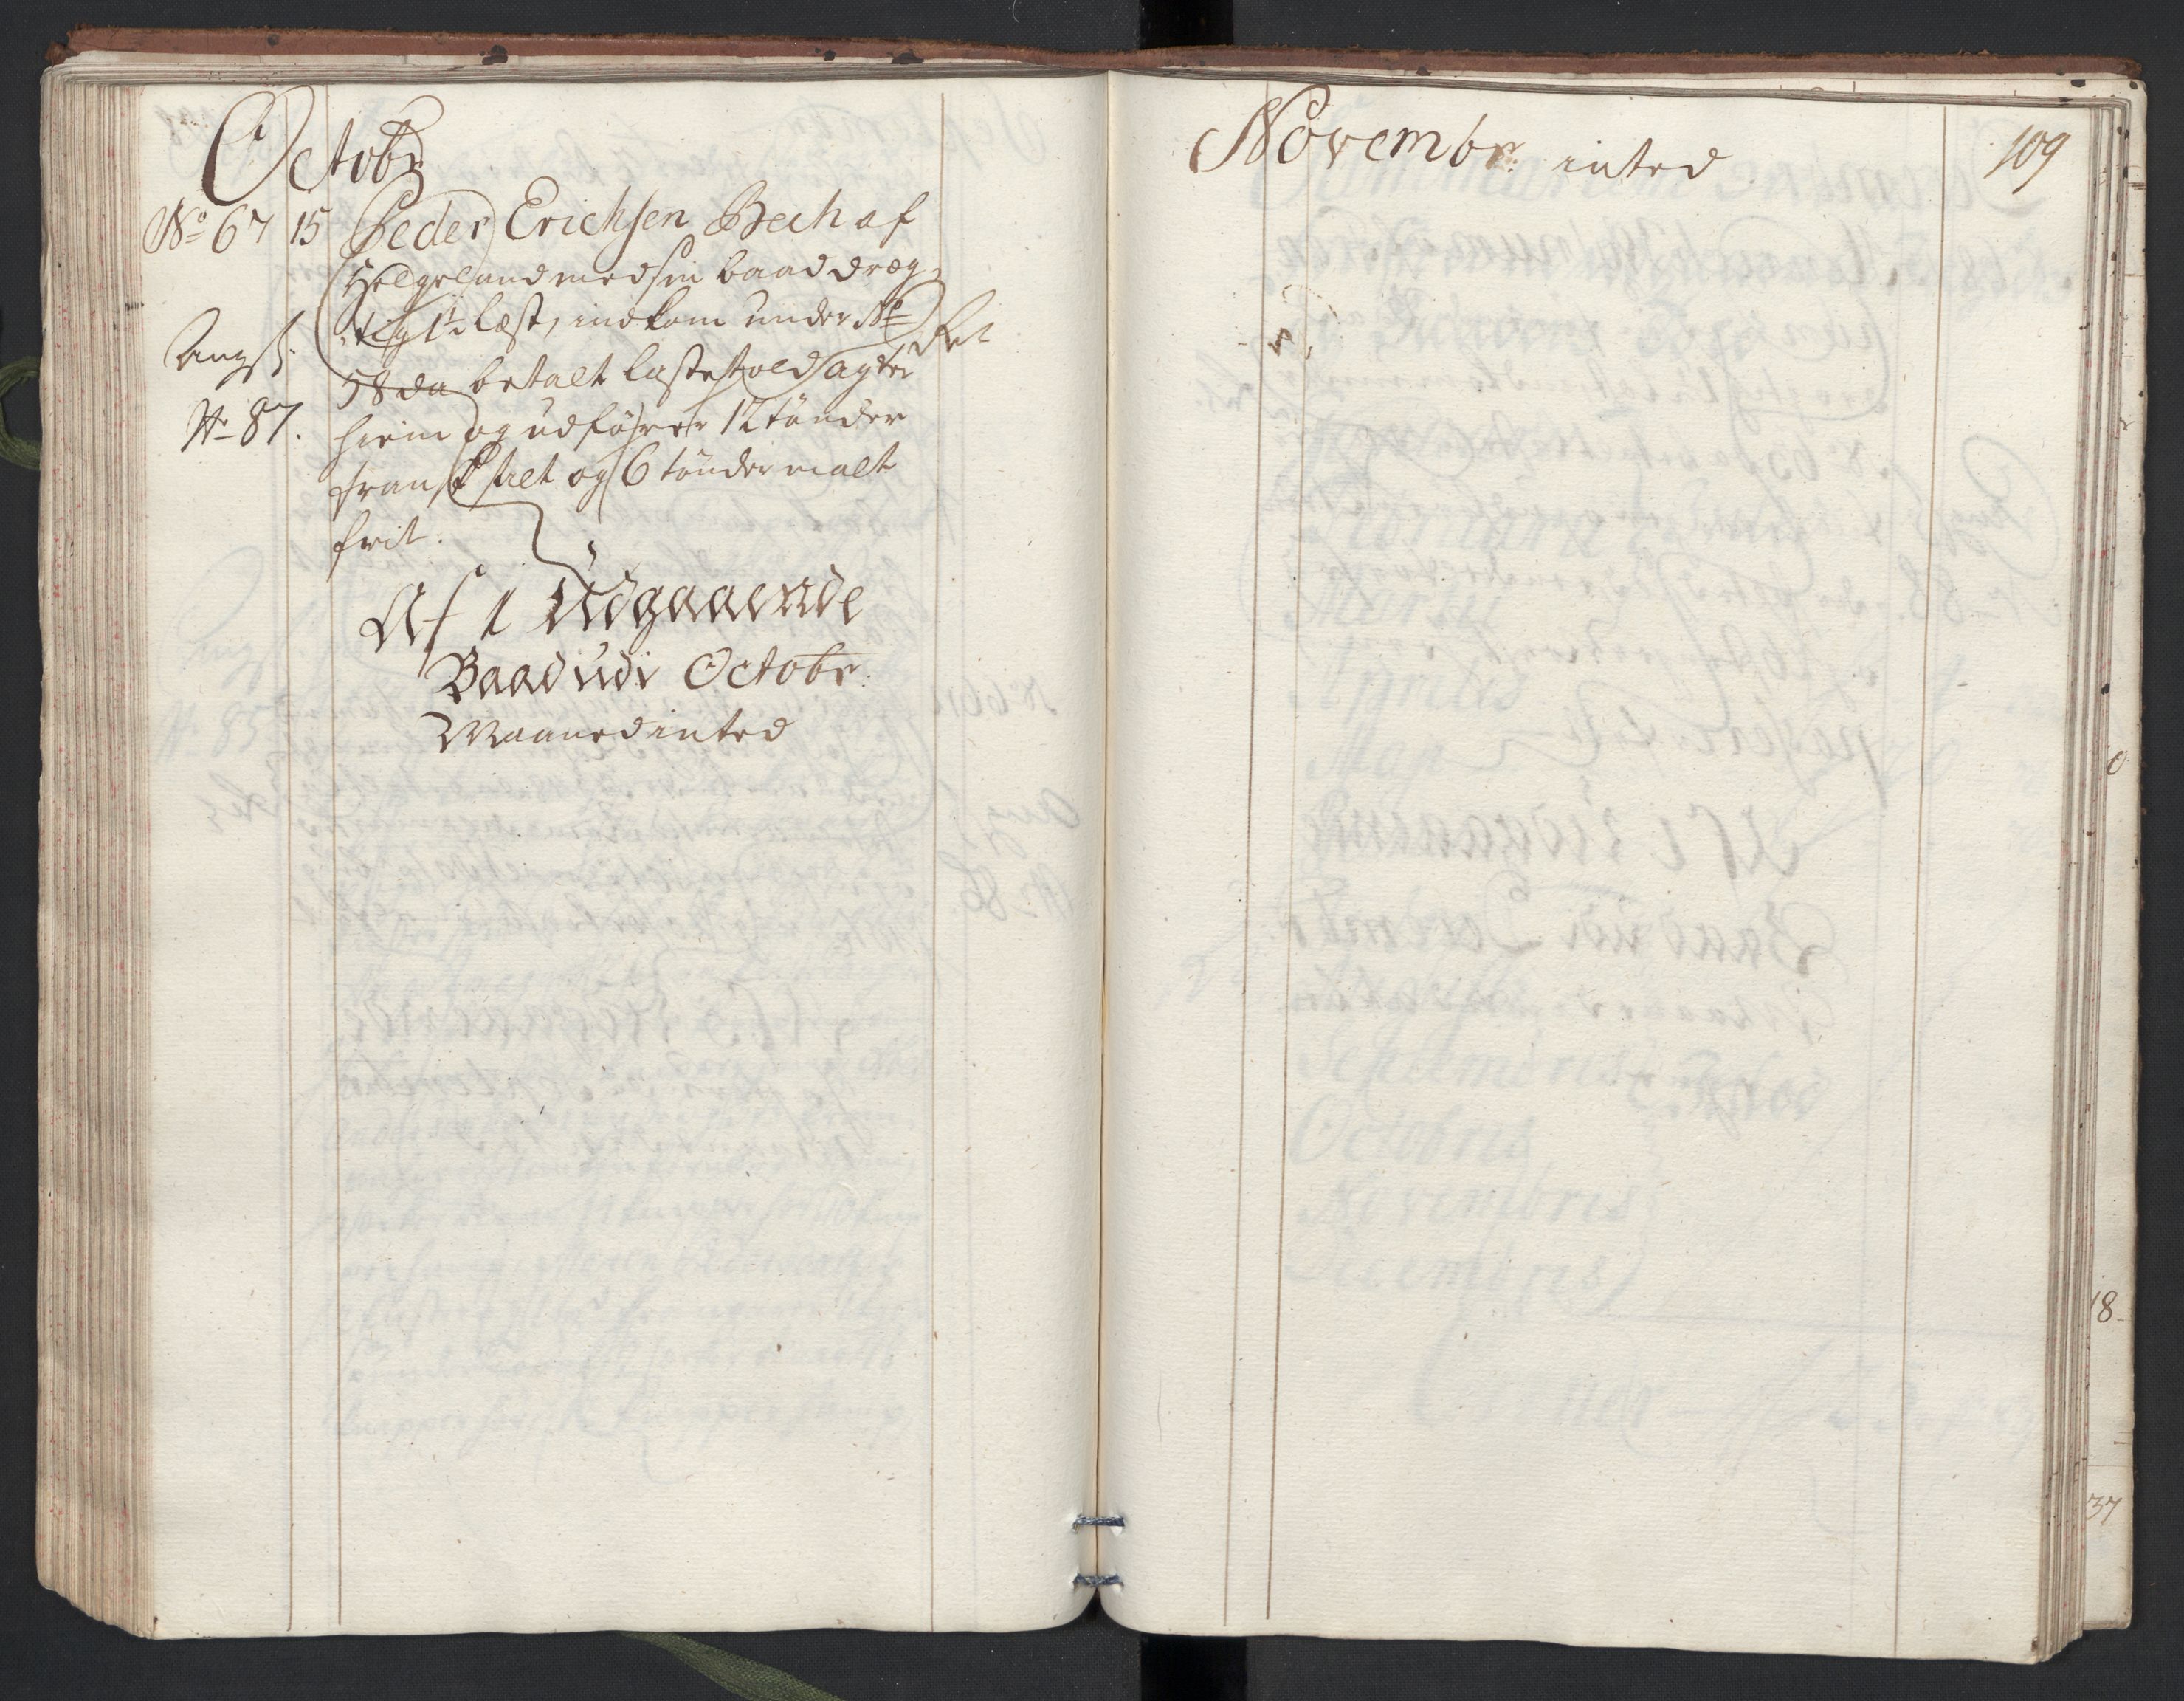 Octobr
No 67 15 Peder Erichsen Bech af
Helgeland med sin baad dræg
tig 1½ Læst, indkom under No
58 da betalt Lastetold agter
hiem og udförer 12 tönder
fransk salt og 6 tönder malt
frit.
Angf:
No 87.
Af 1 Udgaaende
Baad udi Octobr:
Maaned inted
Novembr: inted
109
18
37